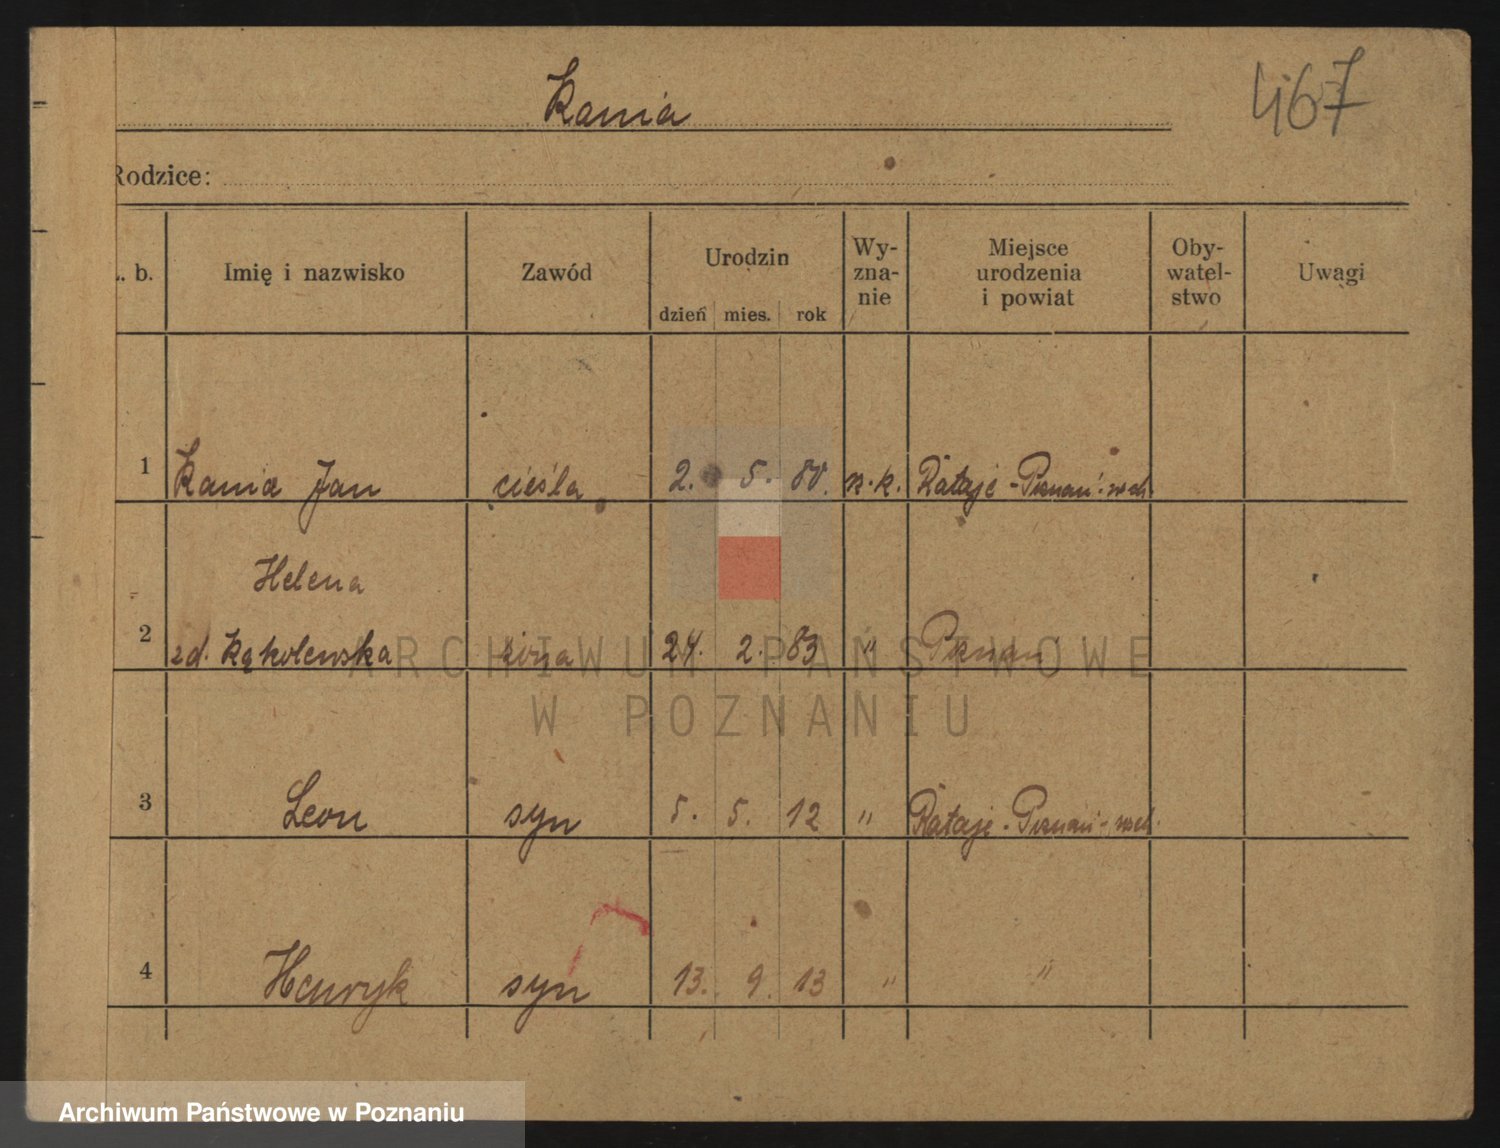 Kania
467
Rodzice:
L. b. Imię i nazwisko Zawód Urodzin Wy-zna-nie Miejsce urodzenia i powiat Oby-watel-stwo Uwagi
dzień mies. rok
1 Kania Jan cieśla 2. 5. 80. rz. k. Rataje - Poznań - wsch.
Helena
2 zd. Kąkolewska żona 24. 2. 83 " Poznań
3 Leon syn 5. 5. 12 " Rataje - Poznań - wsch.
4 Henryk syn 13. 9. 13 " "
ARCHIWUM PAŃSTWOWE
W POZNANIU
Archiwum Państwowe w Poznaniu